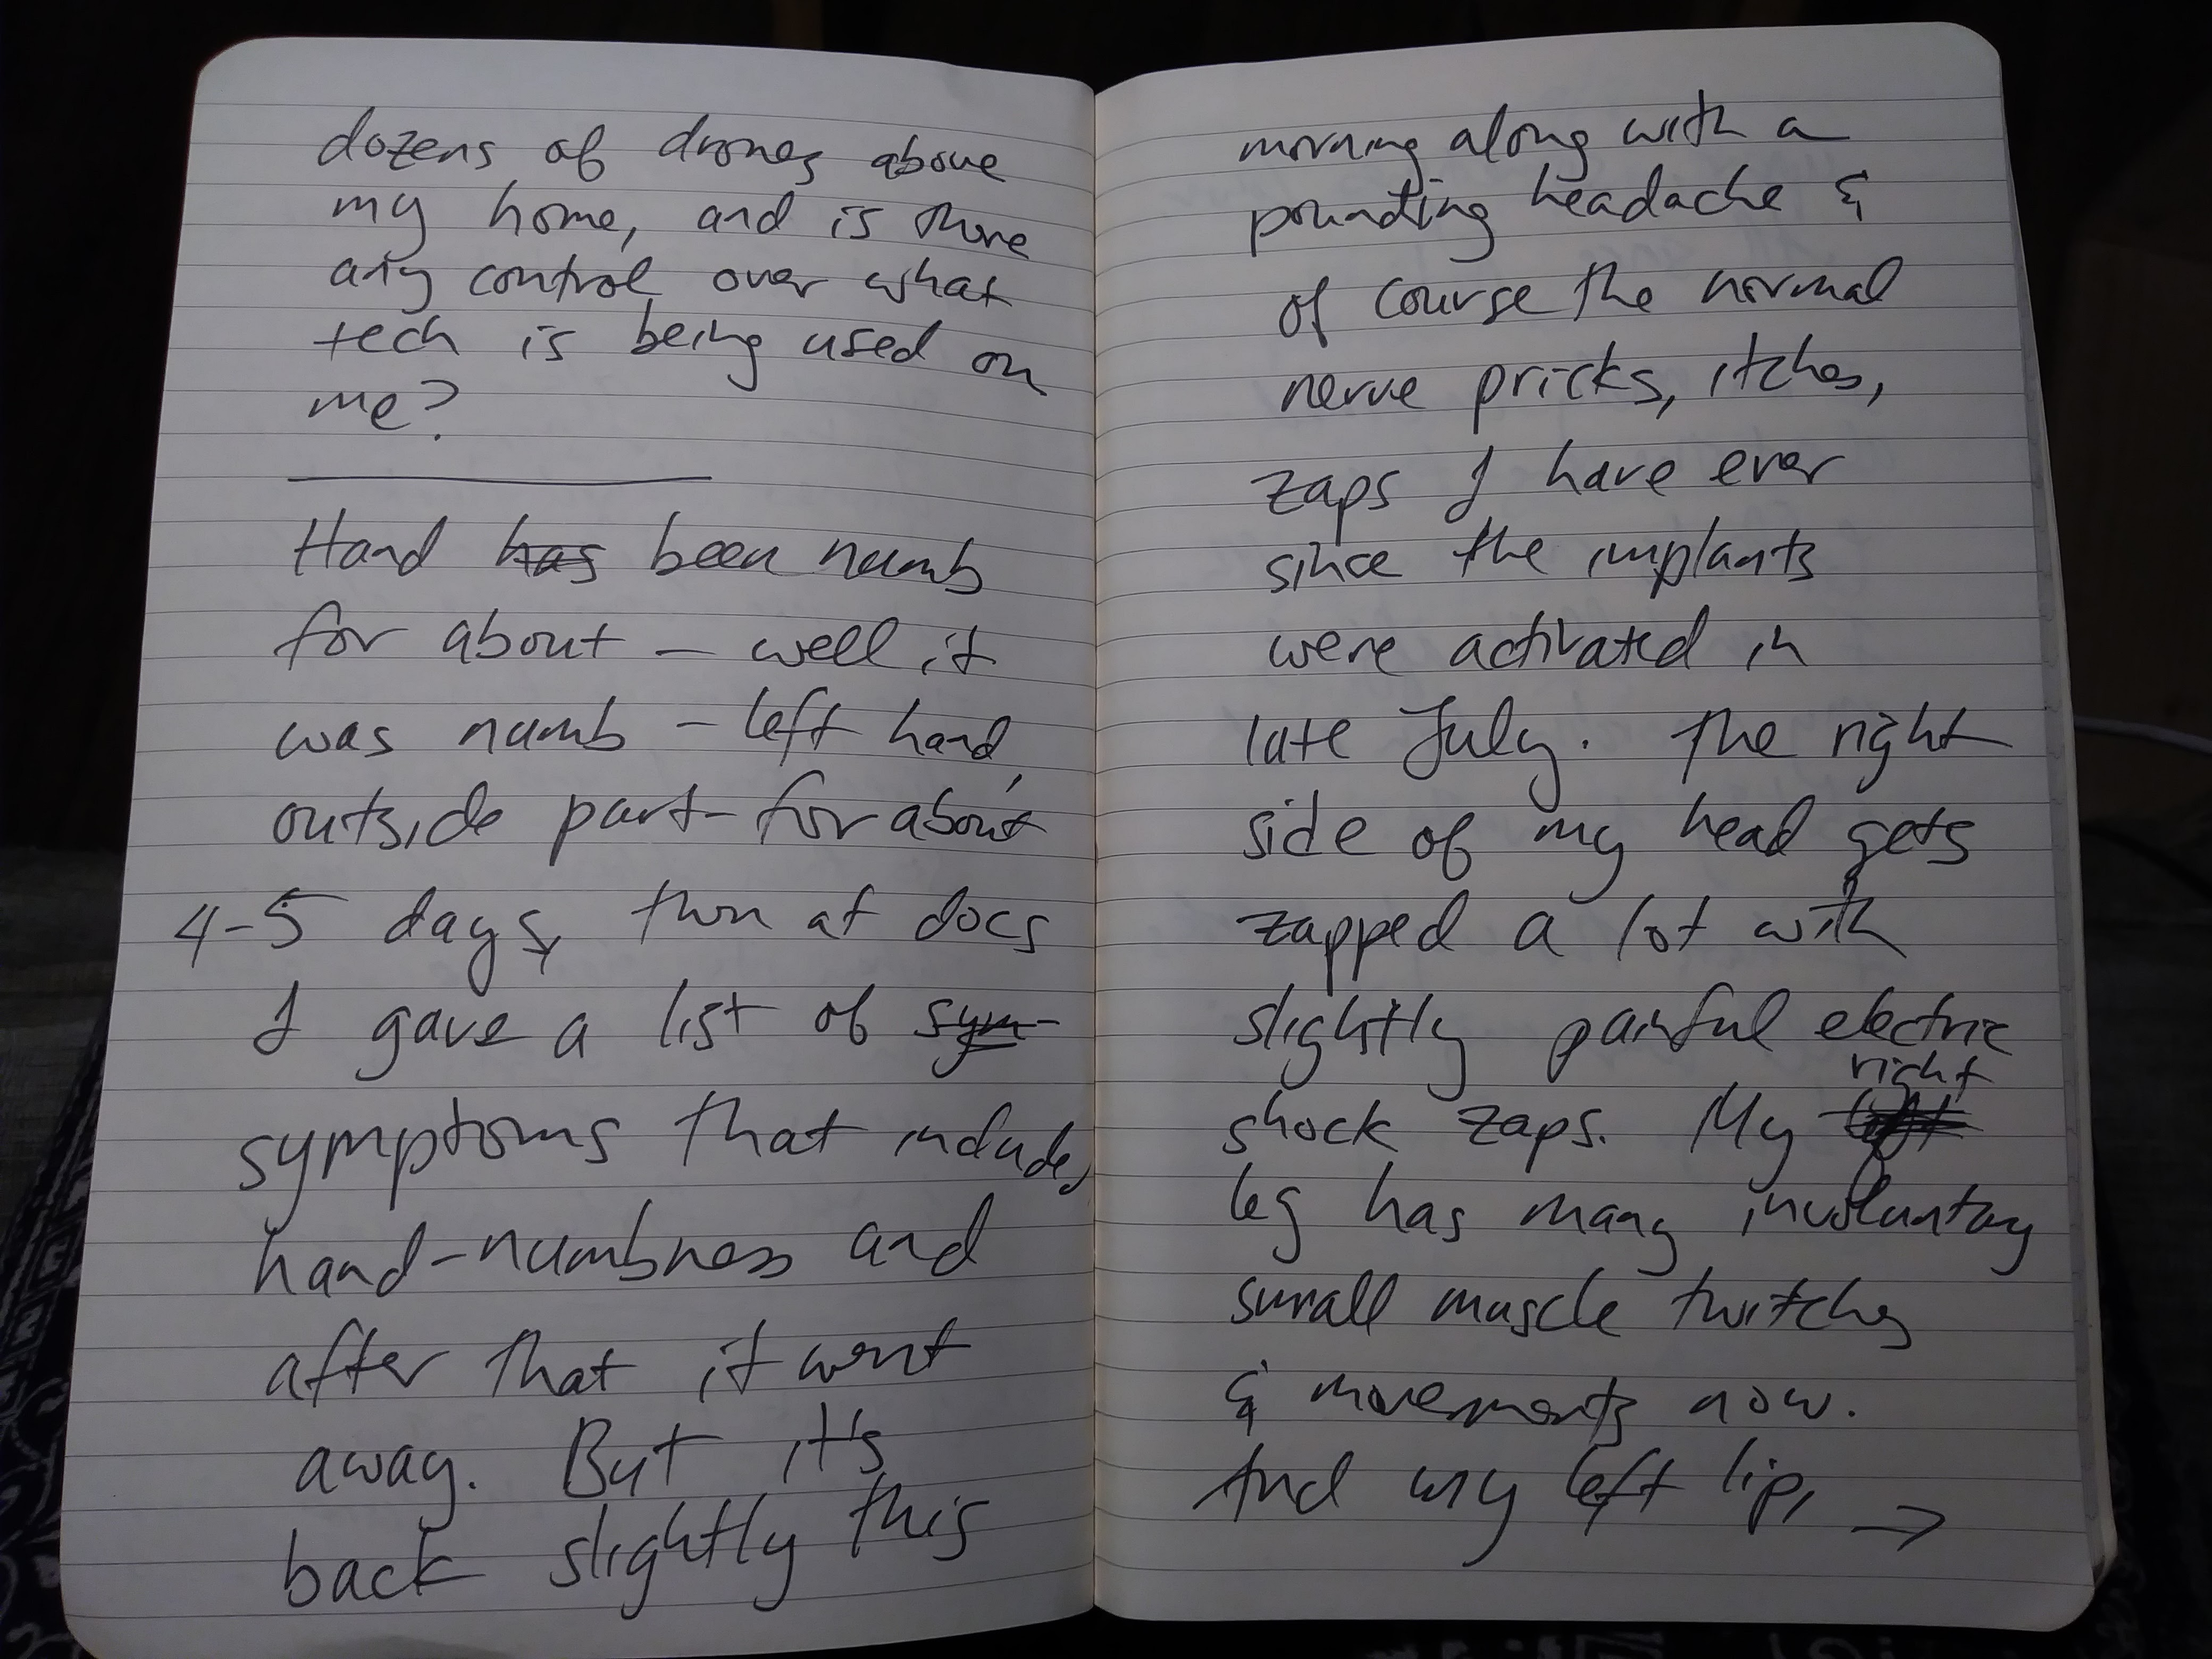 dozens of drones above
my home, and is there
any control over what
tech is being used on
me?
Hand has been numb
for about – well it
was numb – left hand,
outside part – for about
4-5 days, then at docs
I gave a list of sym-
symptoms that include,
hand-numbness and
after that it went
away. But it's
back slightly this
morning along with a
pounding headache &
of course the normal
nerve pricks, itches,
zaps I have ever
since the implants
were activated in
late July. The right
side of my head gets
zapped a lot with
slightly painful electric
shock zaps. My left right
leg has many involuntary
small muscle twitches
& movements now.
And my left lip, →